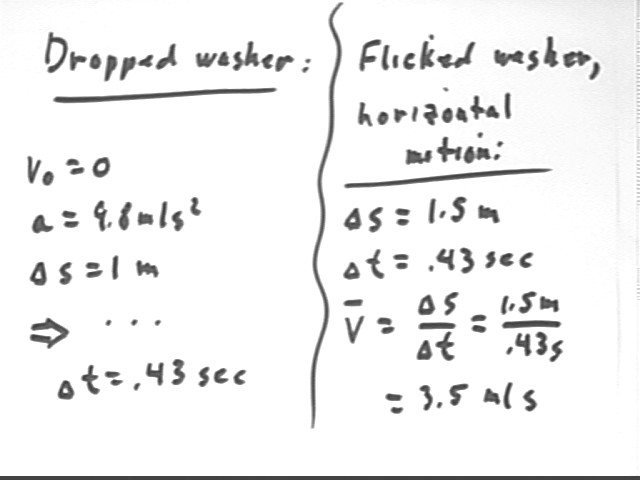 Dropped washer:
V₀ = 0
a = 9.8 m/s²
Δs = 1 m
⇒ ...
Δt = .43 sec
Flicked washer,
horizontal
motion:
Δs = 1.5 m
Δt = .43 sec
V̅ = Δs/Δt = 1.5m/.43s
= 3.5 m/s